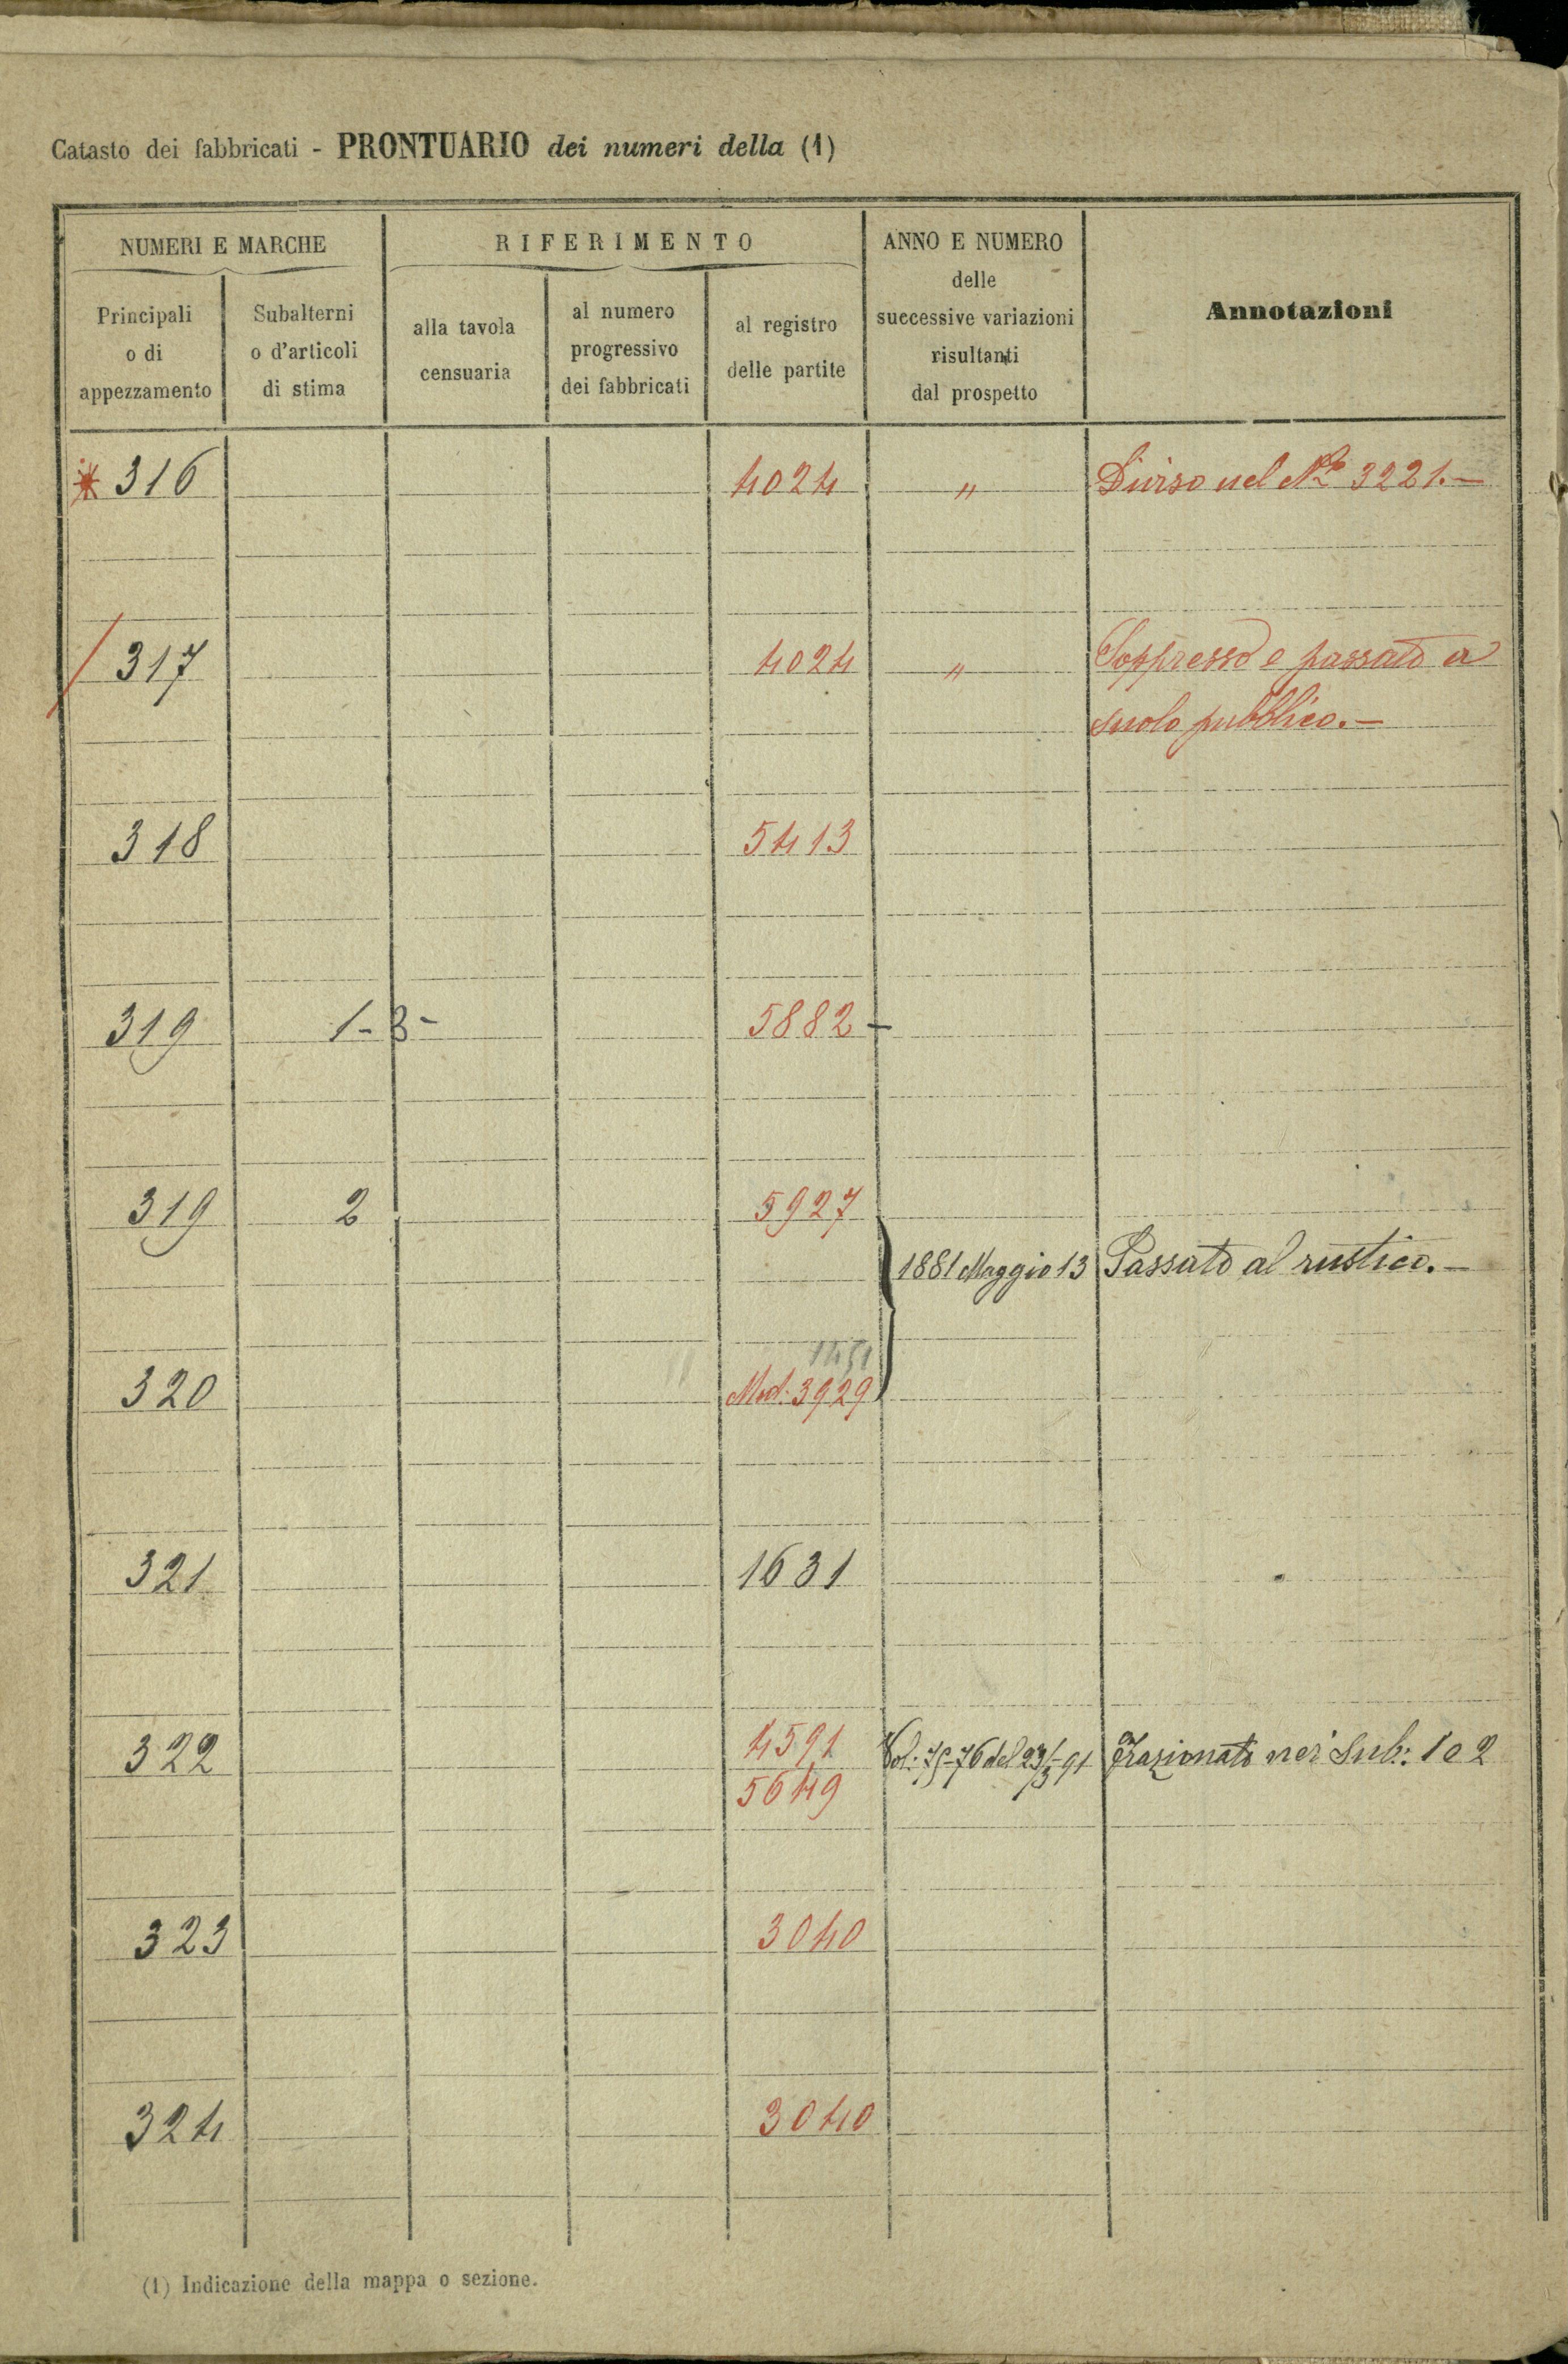 Catasto dei fabbricati - PRONTUARIO dei numeri della (1)
NUMERI E MARCHE
RIFERIMENTO
ANNO E NUMERO
delle
successive variazioni
risultanti
dal prospetto
Annotazioni
Principali
o di
appezzamento
Subalterni
o d'articoli
di stima
alla tavola
censuaria
al numero
progressivo
dei fabbricati
al registro
delle partite
* 316 4024 " Diviso nel No 3221.—
/ 317 4024 " Soppresso e passato a
suolo pubblico.—
318 5413
319 1-3- 5882 -
319 2 5927
1881 Maggio 13 Passato al rustico.—
1451
320 Mod. 3929
321 1631
322 4591 Vol: 75-76 del 23/3-91 Frazionato nei Sub: 1 e 2
5649
323 3040
324 3040
(1) Indicazione della mappa o sezione.